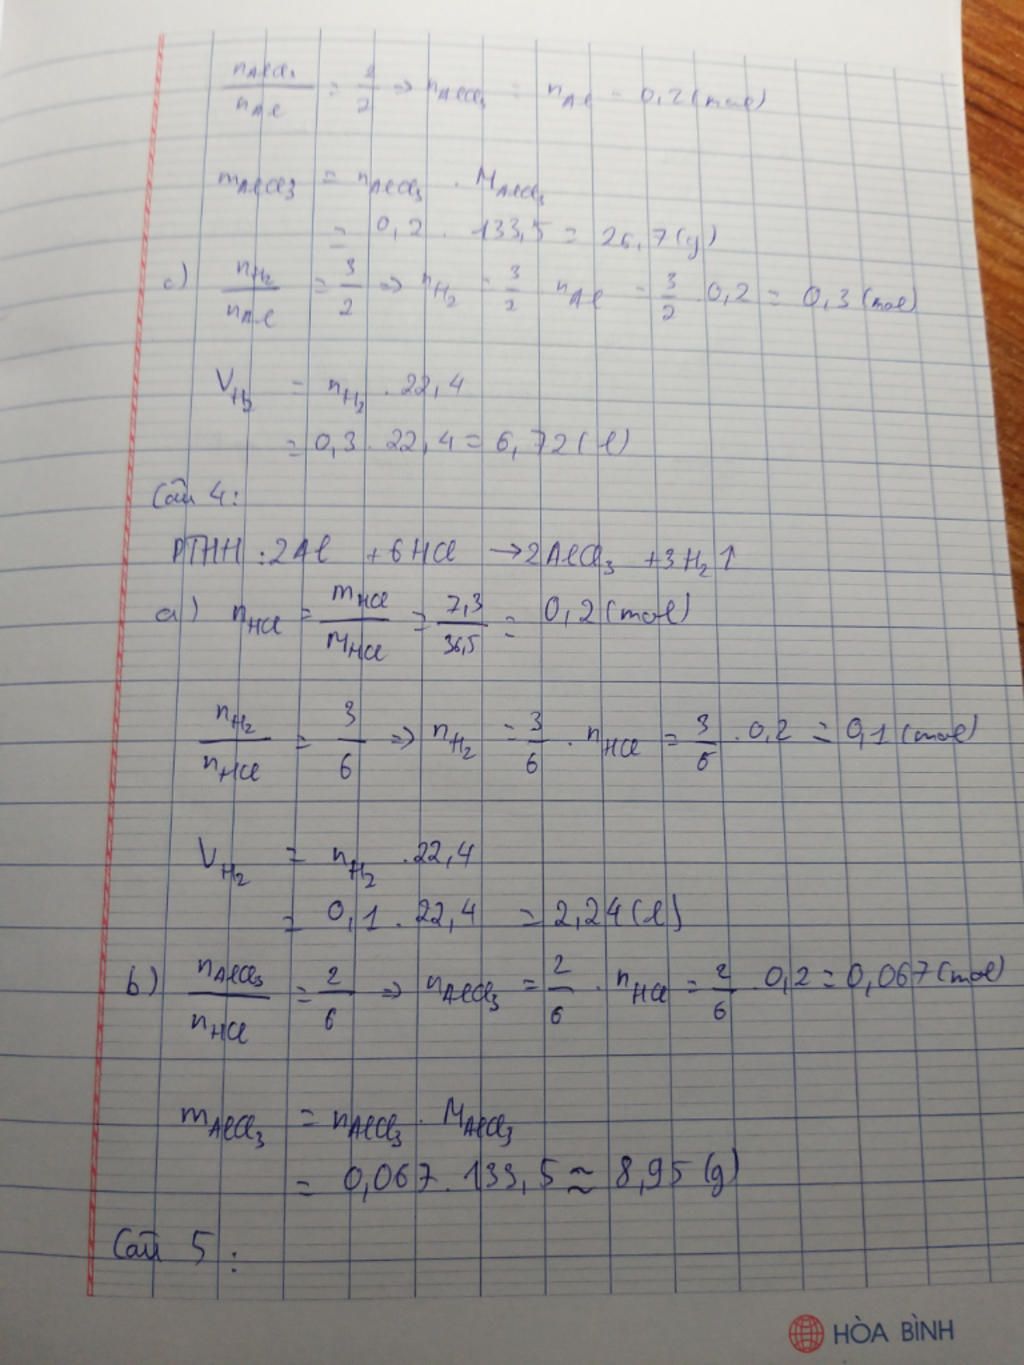 nAlCl₃/nAl = 2/2 => nAlCl₃ = nAl = 0,2 (mol)
mAlCl₃ = nAlCl₃ . MAlCl₃
= 0,2 . 133,5 = 26,7 (g)
c) nH₂/nAl = 3/2 => nH₂ = 3/2 nAl = 3/2 . 0,2 = 0,3 (mol)
VH₂ = nH₂ . 22,4
= 0,3 . 22,4 = 6,72 (l)
Câu 4:
PTHH : 2Al + 6HCl → 2AlCl₃ + 3H₂↑
a) nHCl = mHCl/MHCl = 7,3/36,5 = 0,2 (mol)
nH₂/nHCl = 3/6 => nH₂ = 3/6 . nHCl = 3/6 . 0,2 = 0,1 (mol)
VH₂ = nH₂ . 22,4
= 0,1 . 22,4 = 2,24 (l)
b) nAlCl₃/nHCl = 2/6 => nAlCl₃ = 2/6 . nHCl = 2/6 . 0,2 = 0,067 (mol)
mAlCl₃ = nAlCl₃ . MAlCl₃
= 0,067 . 133,5 ≈ 8,95 (g)
Câu 5 :
HÒA BÌNH